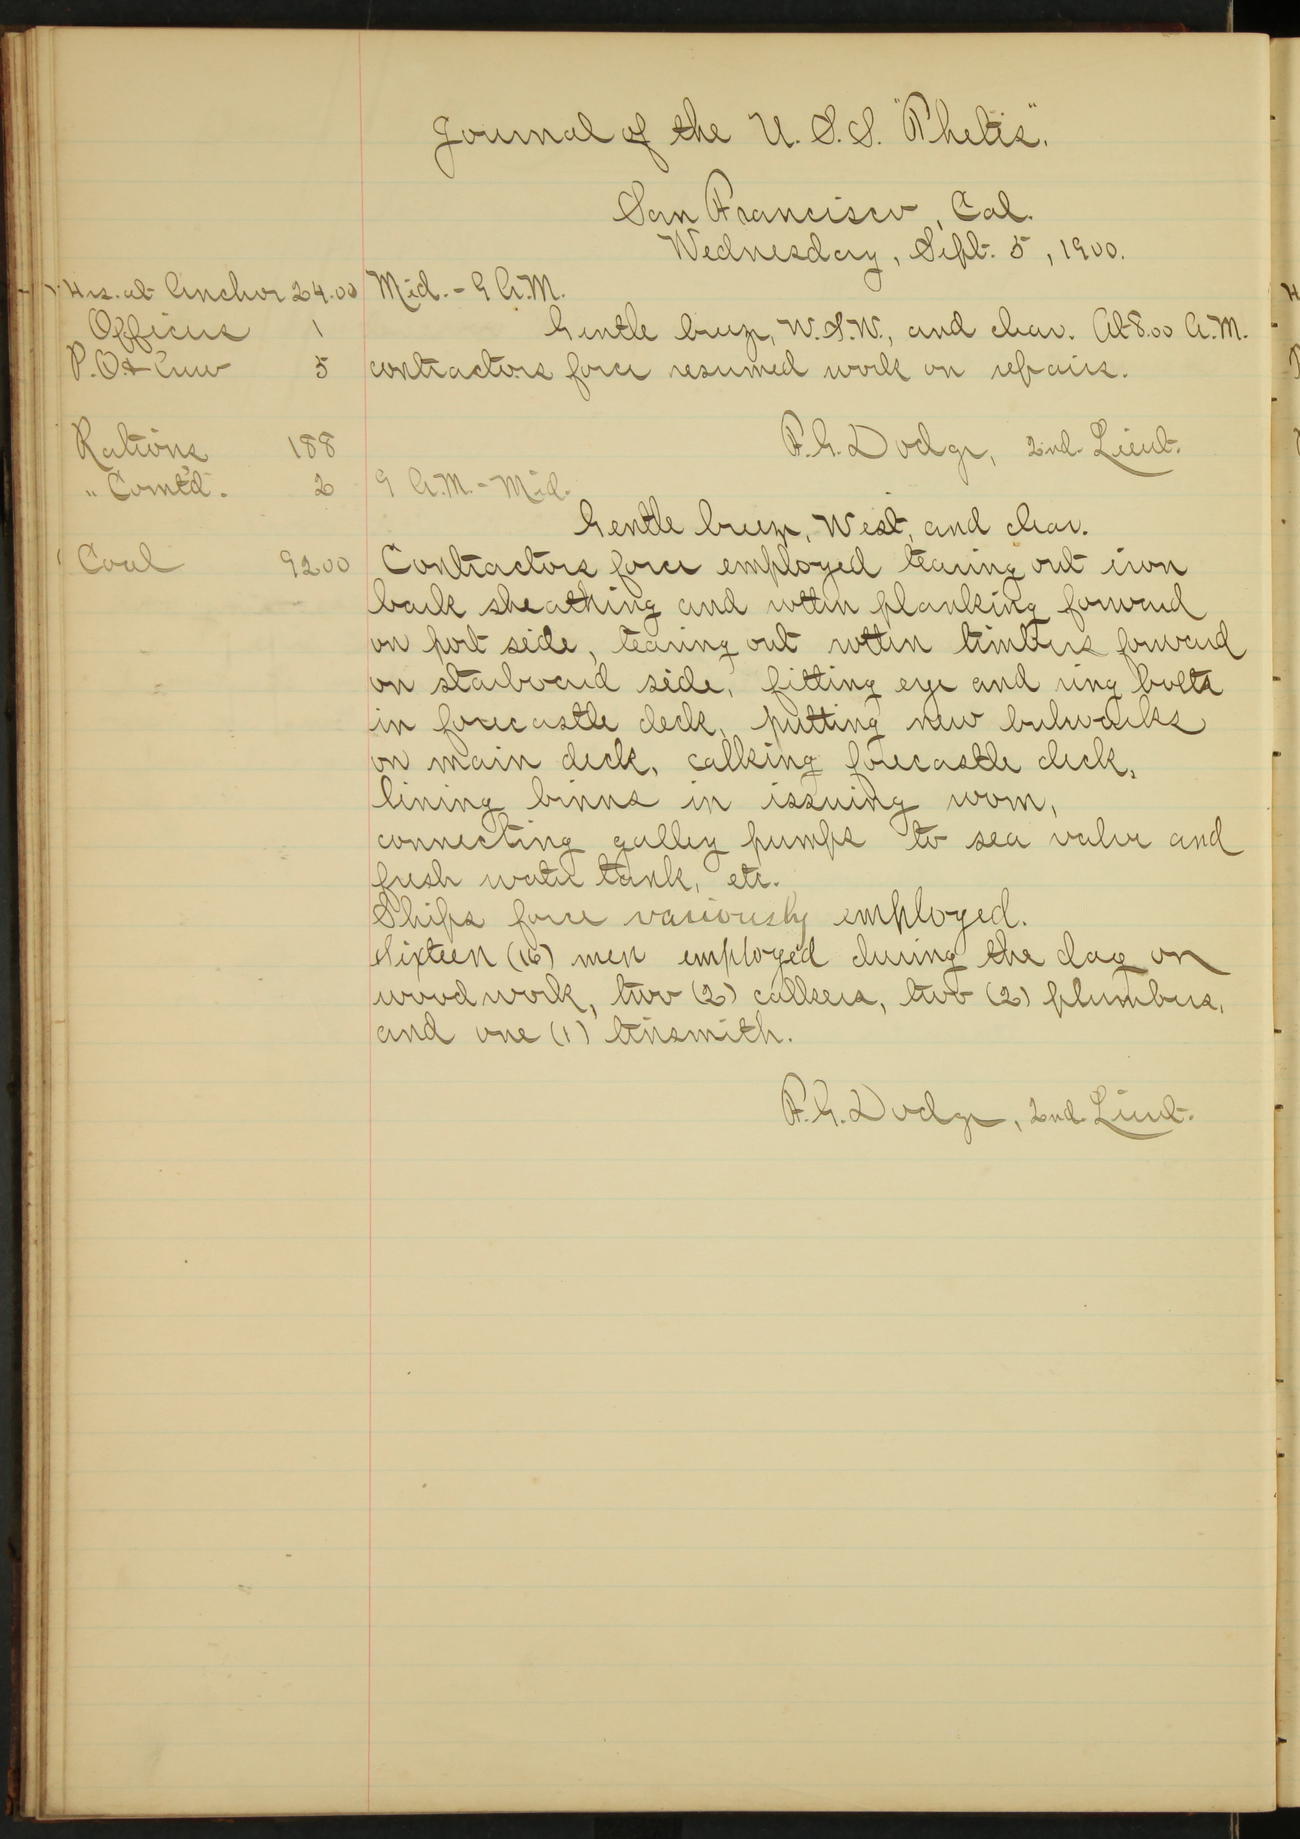 Journal of the U.S.S. "Thetis".
San Francisco, Cal.
Wednesday, Sept. 5, 1900.
Hrs. at Anchor 24.00
Mid. - 9 A.M.
Officers 1
Gentle breeze, W.S.W., and clear. At 8.00 A.M.
P.O & Crew 5
contractors force resumed work on repairs.
Rations 188
F.G. Dodge, 2nd. Lieut.
" Comt'd. 2
9 A.M. - Mid.
Gentle breeze, West, and clear.
Coal 9200
Contractors force employed tearing out iron
bark sheathing and rotten planking forward
on port side, tearing out rotten timbers forward
on starboard side, fitting eye and ring bolts
in forecastle deck, putting new bulwarks
on main deck, calking forecastle deck,
lining binns in issuing room,
connecting galley pumps to sea valve and
fresh water tank, etc.
Ships force variously employed.
Sixteen (16) men employed during the day on
woodwork, two (2) calkers, two (2) plumbers,
and one (1) tinsmith.
F.G. Dodge, 2nd. Lieut.